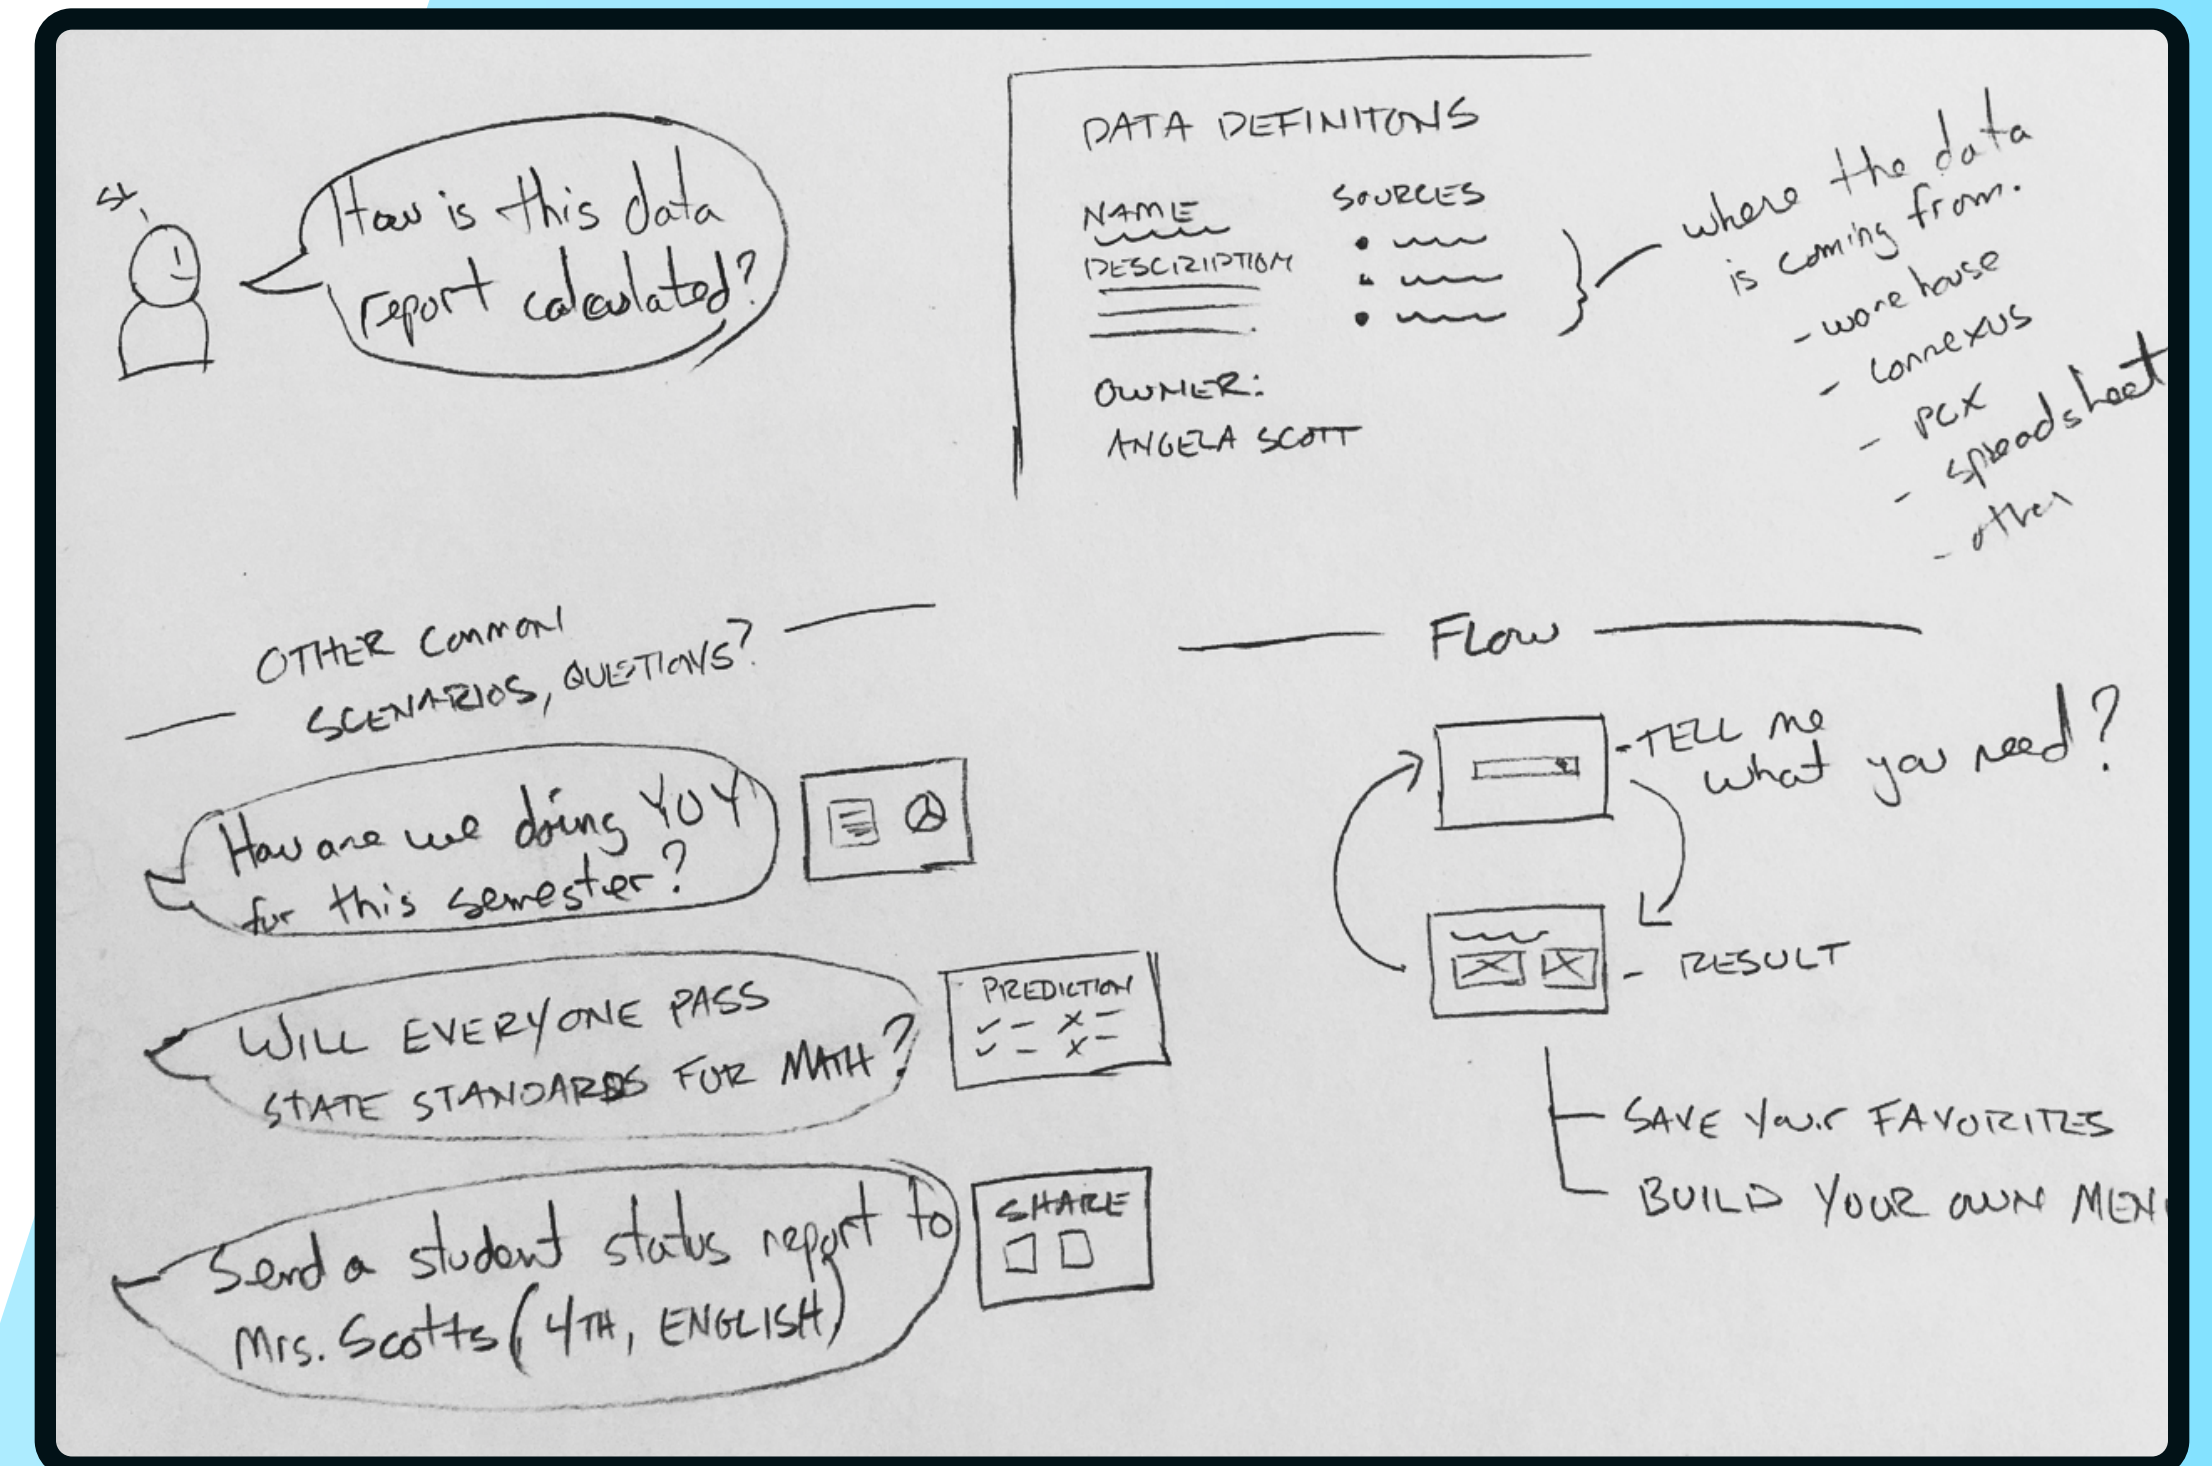 How is this data
report calculated?
DATA DEFINITONS
NAME
DESCRIPTION
OWNER:
ANGELA SCOTT
SOURCES
where the data
is coming from.
- warehouse
- Connexus
- PCX
- spreadsheet
- other
OTHER COMMON
SCENARIOS, QUESTIONS?
How are we doing YOY
for this semester?
WILL EVERYONE PASS
STATE STANDARDS FOR MATH?
PREDICTION
Send a student status report to
Mrs. Scotts (4TH, ENGLISH)
SHARE
FLOW
- TELL me
what you need?
- RESULT
SAVE your FAVORITES
BUILD YOUR OWN MEN